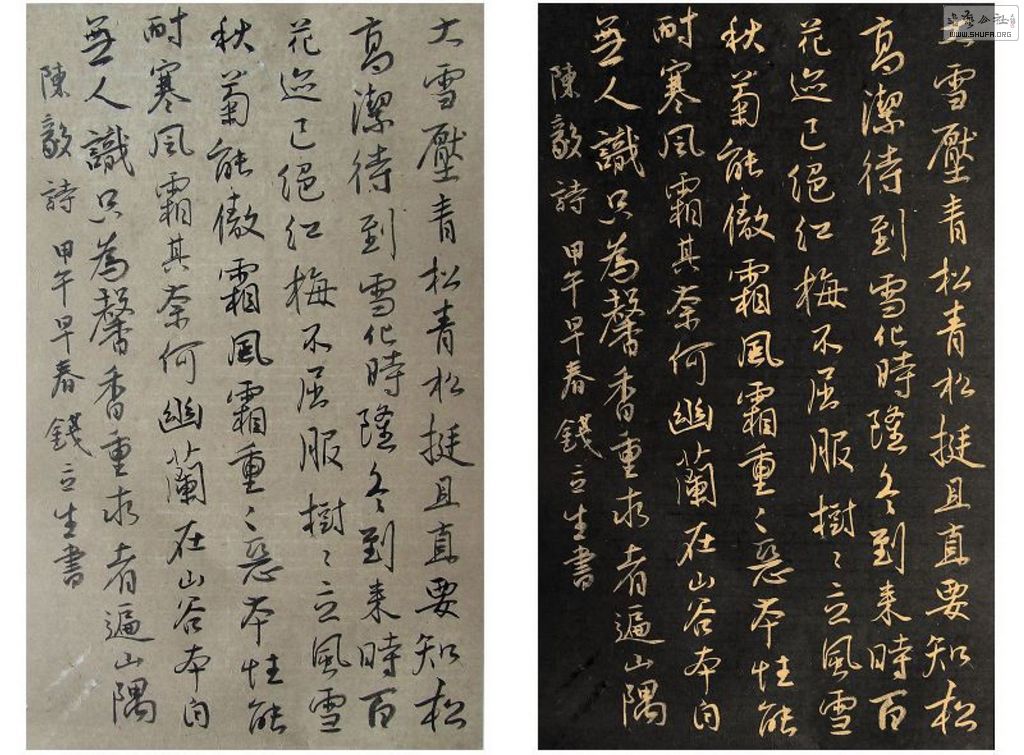 大雪壓青松青松挺且直要知松
高潔待到雪化時隆冬到來時百
花迹已絕紅梅不屈服樹〻立風雪
秋菊能傲霜風霜重〻惡本性能
耐寒風霜其奈何幽蘭在山谷本自
無人識只為馨香重求者遍山隅
陳毅詩 甲午早春錢立生書
大雪壓青松青松挺且直要知松
高潔待到雪化時隆冬到來時百
花迹已絕紅梅不屈服樹〻立風雪
秋菊能傲霜風霜重〻惡本性能
耐寒風霜其奈何幽蘭在山谷本自
無人識只為馨香重求者遍山隅
陳毅詩 甲午早春錢立生書
公社
WWW.SHUFA.ORG